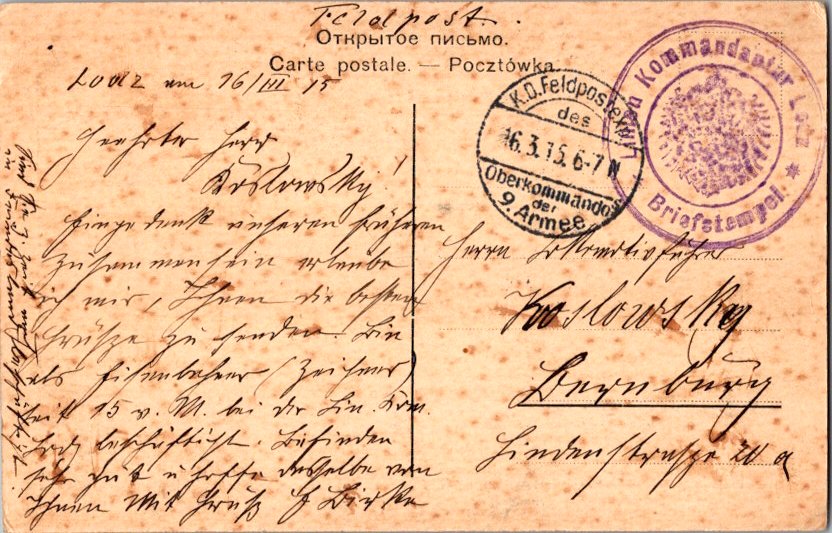 Feldpost.
Открытое письмо.
Carte postale. — Pocztówka.
Lodz am 16/III 15
Geehrter Herr
Koslowsky!
Eingedenk unseren früheren
Zusammensein erlaube
ich mir, Ihnen die besten
Grüsze zu senden. Bin
als Eisenbahner (Zeichner)
seit 15 v. M. bei der Lin. Kom.
Lodz beschäftigt. Befinden
sehr gut u hoffe dasselbe von
Ihnen Mit Gruß
K.D. Feldpostexp.
des
16.3.15. 6-7 N
Oberkommandos
der
9. Armee
Kommandantur Lodz
* Briefstempel. *
Herrn Lokomotivführer
Koslowsky
Bernburg
Lindenstrasze 20 a